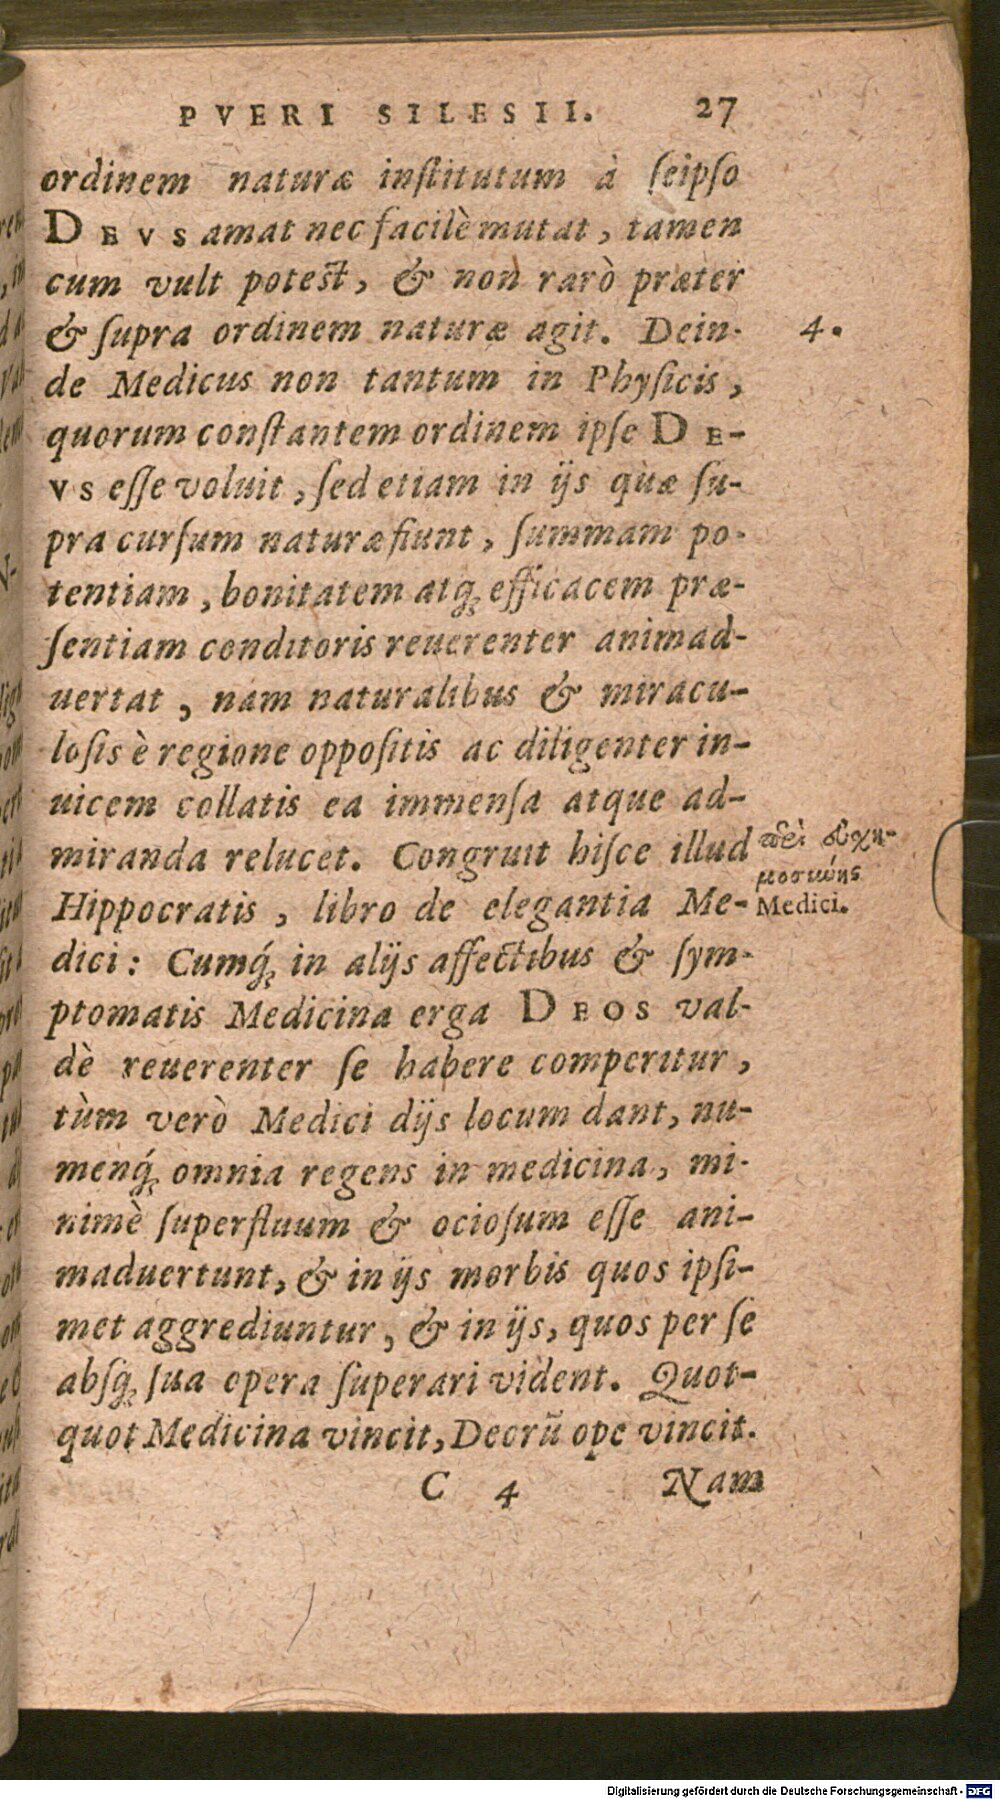 PVERI SILESII. 27
ordinem naturæ inſtitutum à ſeipſo
DEVS amat nec facilè mutat, tamen
cum vult poteſt, & non rarò præter
& ſupra ordinem naturæ agit. Dein-
4.
de Medicus non tantum in Phyſicis,
quorum conſtantem ordinem ipſe DE-
VS eſſe voluit, ſed etiam in ijs quæ ſu-
pra curſum naturæ fiunt, ſummam po-
tentiam, bonitatem atq; efficacem præ-
ſentiam conditoris reuerenter animad-
uertat, nam naturalibus & miracu-
loſis è regione oppoſitis ac diligenter in-
uicem collatis ea immenſa atque ad-
miranda relucet. Congruit hiſce illud
Hippocratis, libro de elegantia Me-
περὶ εὐχη-
μοσιώης
Medici.
dici: Cumq́; in alijs affectibus & ſym-
ptomatis Medicina erga DEOS val-
dè reuerenter ſe habere comperitur,
tùm verò Medici dijs locum dant, nu-
menq́; omnia regens in medicina, mi-
nimè ſuperfluum & ocioſum eſſe ani-
maduertunt, & in ijs morbis quos ipſi-
met aggrediuntur, & in ijs, quos per ſe
abſq; ſua opera ſuperari vident. Quot-
quot Medicina vincit, Deorū ope vincit.
C 4 Nam
Digitalisierung gefördert durch die Deutsche Forschungsgemeinschaft - DFG